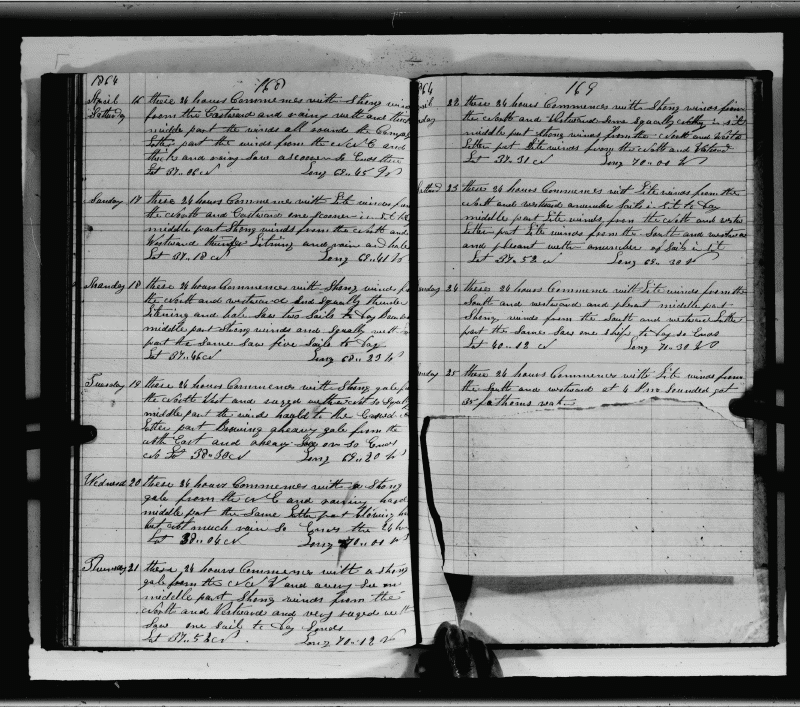 1864 168
April 16 these 24 hours Commences with Strong wind
Satturday from the Eastward and rainy with and thick
middle part the winds all round the Compas
Letter part the winds from the N N E and
thick and rainy Saw a scooner So Ends these
Lat 37..06 N Long 68..45 W
Sunday 17 these 24 hours Commences with Lite winds from
the North and Eastward one scooner in sit
middle part Strong winds from the North and
Westward thunder Litning and rain and hale
Lat 37..18 N Long 68..41 W
Manday 18 these 24 hours Commences with Strong winds
the North and westward and Squally thunder
Litening and hale Saw two Sails to Day
middle part Strong winds and Squally
part the Same Saw five Sails to Day
Lat 37..46 N Long 68..23 W
Tuesday 19 these 24 hours Commences with Strong gale
the North West and ruged wether
middle part the wind to the Easward
Letter part Blowing a heavy gale from the
North East and a heavy Sea on So Ends
No Lat 38..30 N Long 69..20 W
Wednesd 20 these 24 hours Commences with a Strong
gale from the N E and raining hard
middle part the Same Letter part Blowing
but not much rain So Ends the 24
Lat 38..04 N Long 70..00 W
Thursday 21 these 24 hours Commences with a Strong
gale from the N N and a very Sea on
middle part Strong winds from the
North and Westward and very ruged
Saw one Sail to Day
Lat 37..52 N Long 70..12 W
169
22 these 24 hours Commences with Strong winds from
the North and Westward Some Squally
middle part Strong winds from the North and
Letter part Lite winds from the North and Westward
Lat 37..31 N Long 70..00 W
23 these 24 hours Commences with Lite winds from the
North and westward a number Sails in sit to Day
middle part Lite winds from the North and
Letter part Lite winds from the South and westward
and plesant wether a number of Sails in sit
Lat 37..52 N Long 69..30 W
24 these 24 hours Commence with Lite winds from the
South and westward and plesant middle part
Strong winds from the South and westward Letter
part the Same Saw one Ship to Day So Ends
Lat 40..12 N Long 71..30 W
25 these 24 hours Commences with Lite winds from
the South and westward at 4 P m Sounded got
35 fathoms